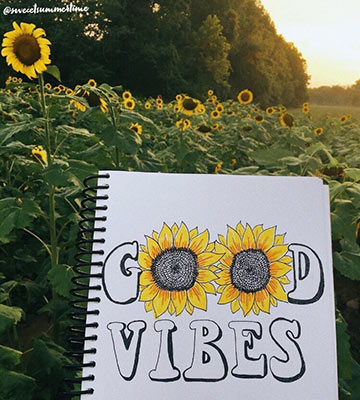 @sweetsummertime
GOOD
VIBES